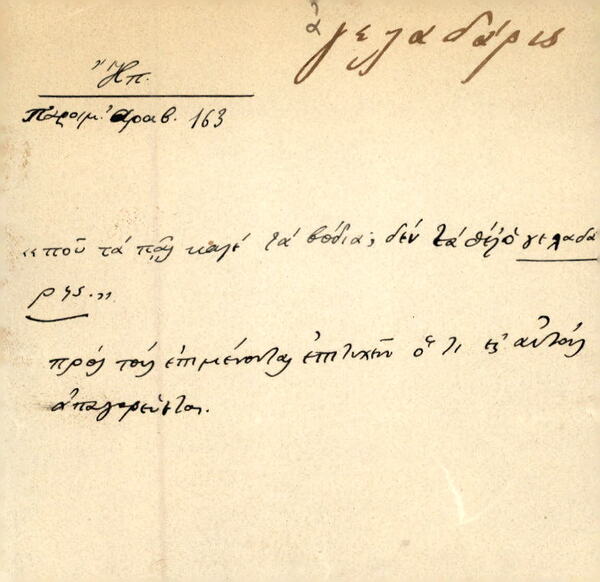 ἀγελαδάρις
Ἠπ.
Παροιμ. Ἀραβ. 163
«ποῦ τά πᾷς καλέ τά βόδια; δέν τά θέλ' ὁ γελαδά
ρης.»
πρός τούς ἐπιμένοντας ἐπιτυχεῖν ὅ τι εἰς αὐτούς
ἀπαγορεύεται.